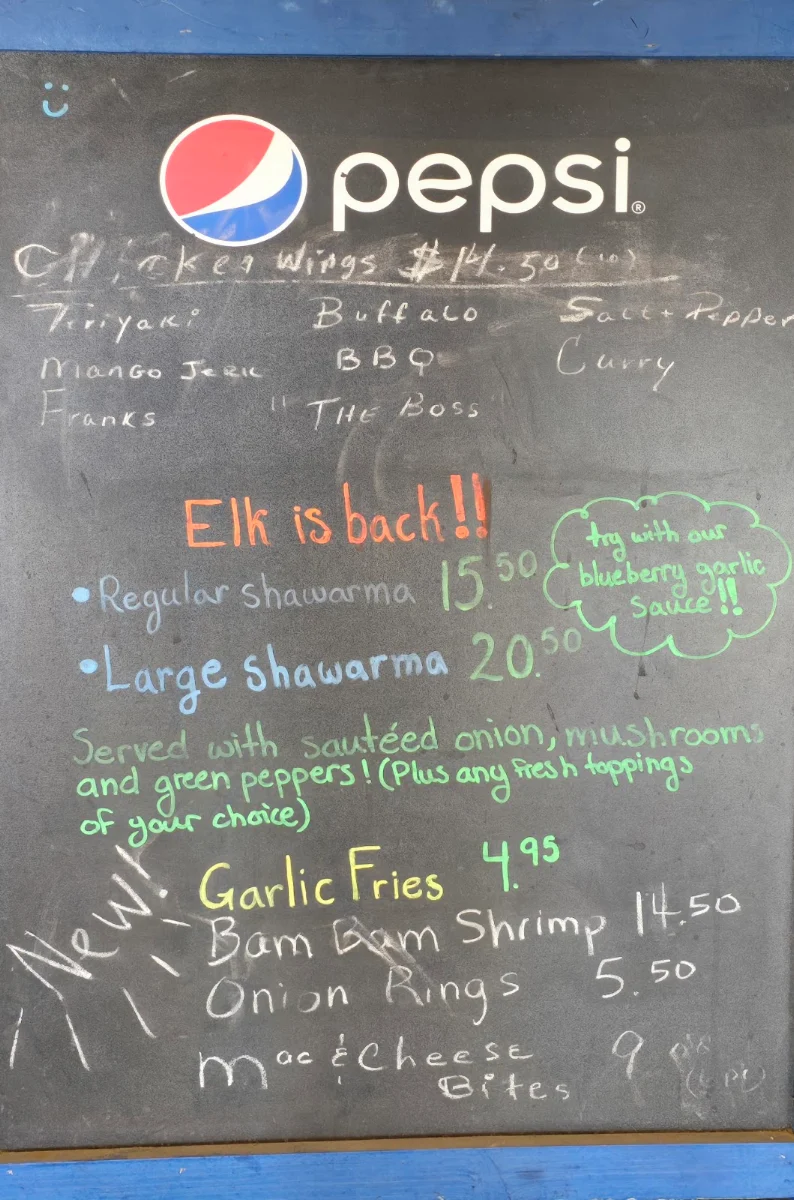 pepsi®
Chicken Wings $14.50 (10)
Teriyaki Buffalo Salt + Pepper
Mango Jerk BBQ Curry
Franks "THE BOSS"
Elk is back!!
• Regular shawarma 15.50
• Large shawarma 20.50
try with our
blueberry garlic
sauce!!
Served with sautéed onion, mushrooms
and green peppers! (Plus any fresh toppings
of your choice)
New!
Garlic Fries 4.95
Bam Bam Shrimp 14.50
Onion Rings 5.50
Mac & Cheese 9
Bites